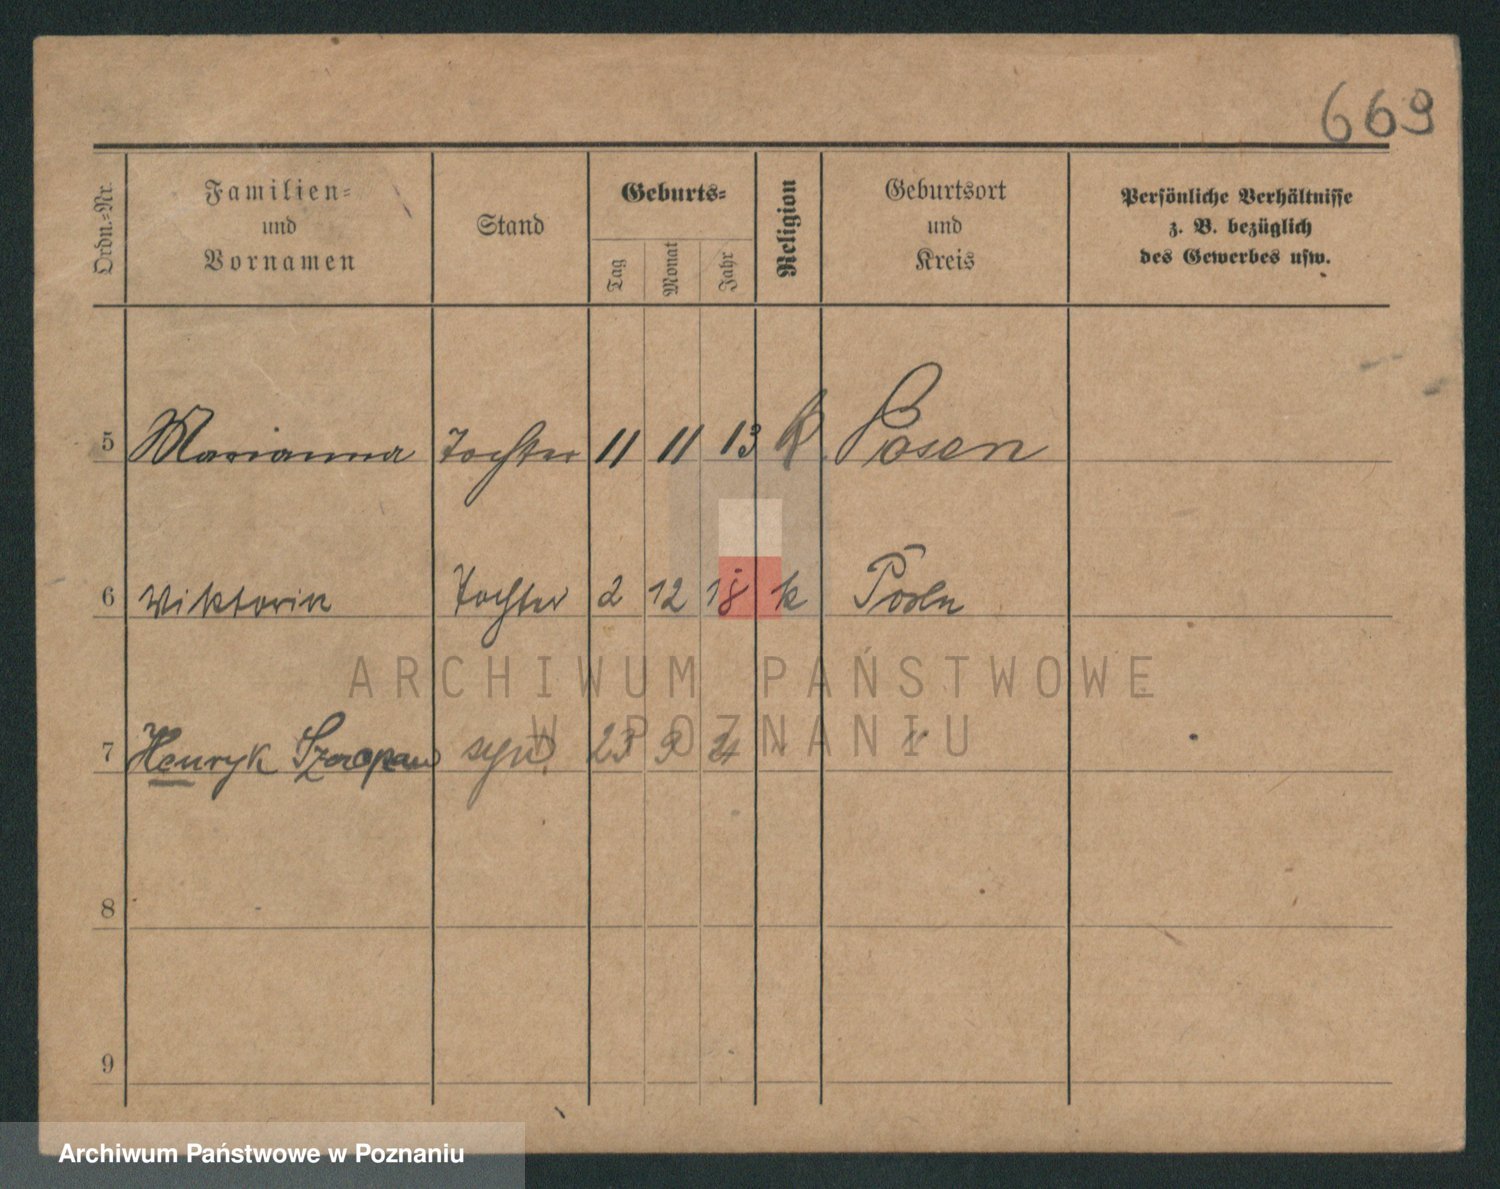 669
Ordn.=Nr.
Familien=
und
Vornamen
Stand
Geburts=
Tag
Monat
Jahr
Religion
Geburtsort
und
Kreis
Persönliche Verhältnisse
z. B. bezüglich
des Gewerbes usw.
5 Marianna Tochter 11 11 13 K. Posen
6 Viktoria Tochter 2 12 18 k Posen
7 Henryk Szczepan syn 23 9 21 " "
8
9
ARCHIWUM PAŃSTWOWE
W POZNANIU
Archiwum Państwowe w Poznaniu